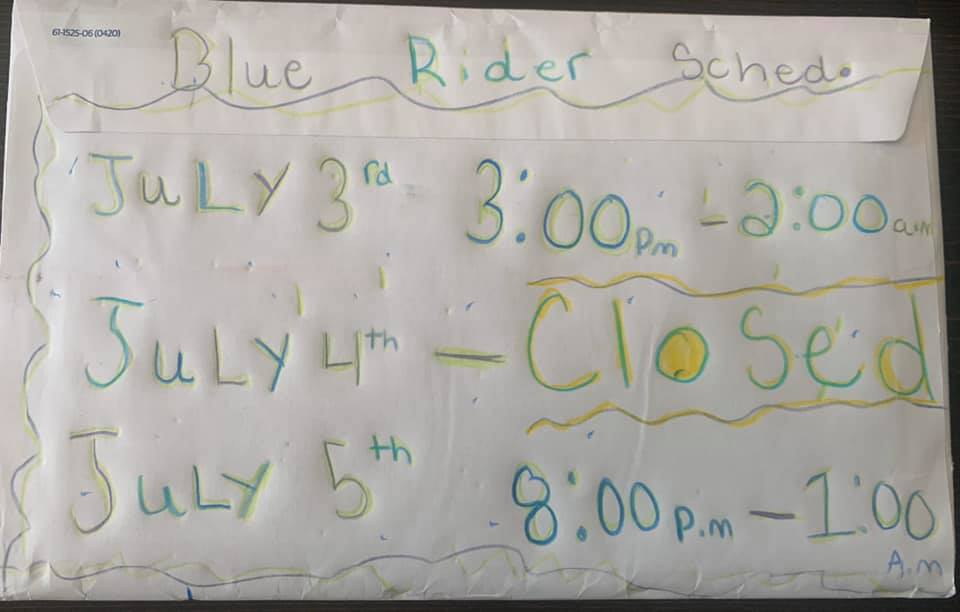 61-1525-06 (0420)
Blue Rider Sched.
JuLY 3rd 3:00pm - 2:00a.m
JuLY 4th - Closed
JuLY 5th 8:00 p.m - 1:00
A.m